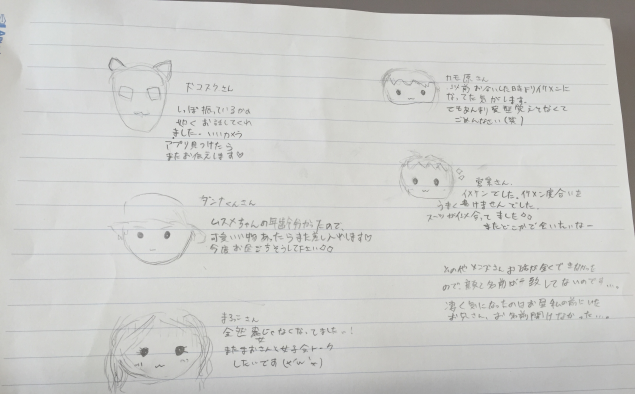 ドコスタさん
しっぽ振っているかの
如くお話してくれ
ました。いいカメラ
アプリ見つけたら
またお伝えします
タンナくんさん
ムスメちゃんの年齢分かったので、
可愛い物あったらまた差し入れします
今度お昼ごちそうして下さい
まるこさん
全然悪じゃなくなってました!
またまおさんと女子会トーク
したいです
カモ原さん
以前お会いした時よりイケメンに
なってた気がします。
でもあんまり髪型変えてなくて
ごめんなさい(笑)
営業さん
イケメンでした。イケメン度合いを
うまく書けませんでした。
スーツがイメ合ってました
またどこかで会いたいなー
その他メンツさんお話が全くできなかった
ので、顔と名前が一致してないのです…。
凄く気になったのはお昼
お兄さん。お名前聞けなかった…。